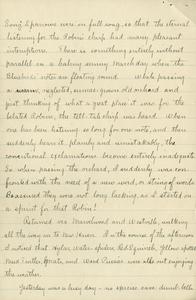 Song Sparrows were in full song, so that the eternal
listening for the Robins' chirp had many pleasant
interruptions. There is something entirely without
parallel in a balmy sunny March day when the
Bluebirds' notes are floating around. While passing
a warm, neglected, unused grown old orchard and
just thinking of what a great place it was for the
belated Robin, the tell-tale chirp was heard. When
one has been listening so long for one note, and then
suddenly hears it, plainly and unmistakably, the
conventional exclamations become entirely inadequate.
So when passing the orchard, I suddenly was con-
fronted with the need of a new word, or string of words
because I was not long looking, as I started on
a sprint for that Robin!
Returned via Marvelwood and Westville, walking
all the way to New Haven. In the course of the afternoon
I noticed that
the weather.
Yesterday was a busy day - no species save